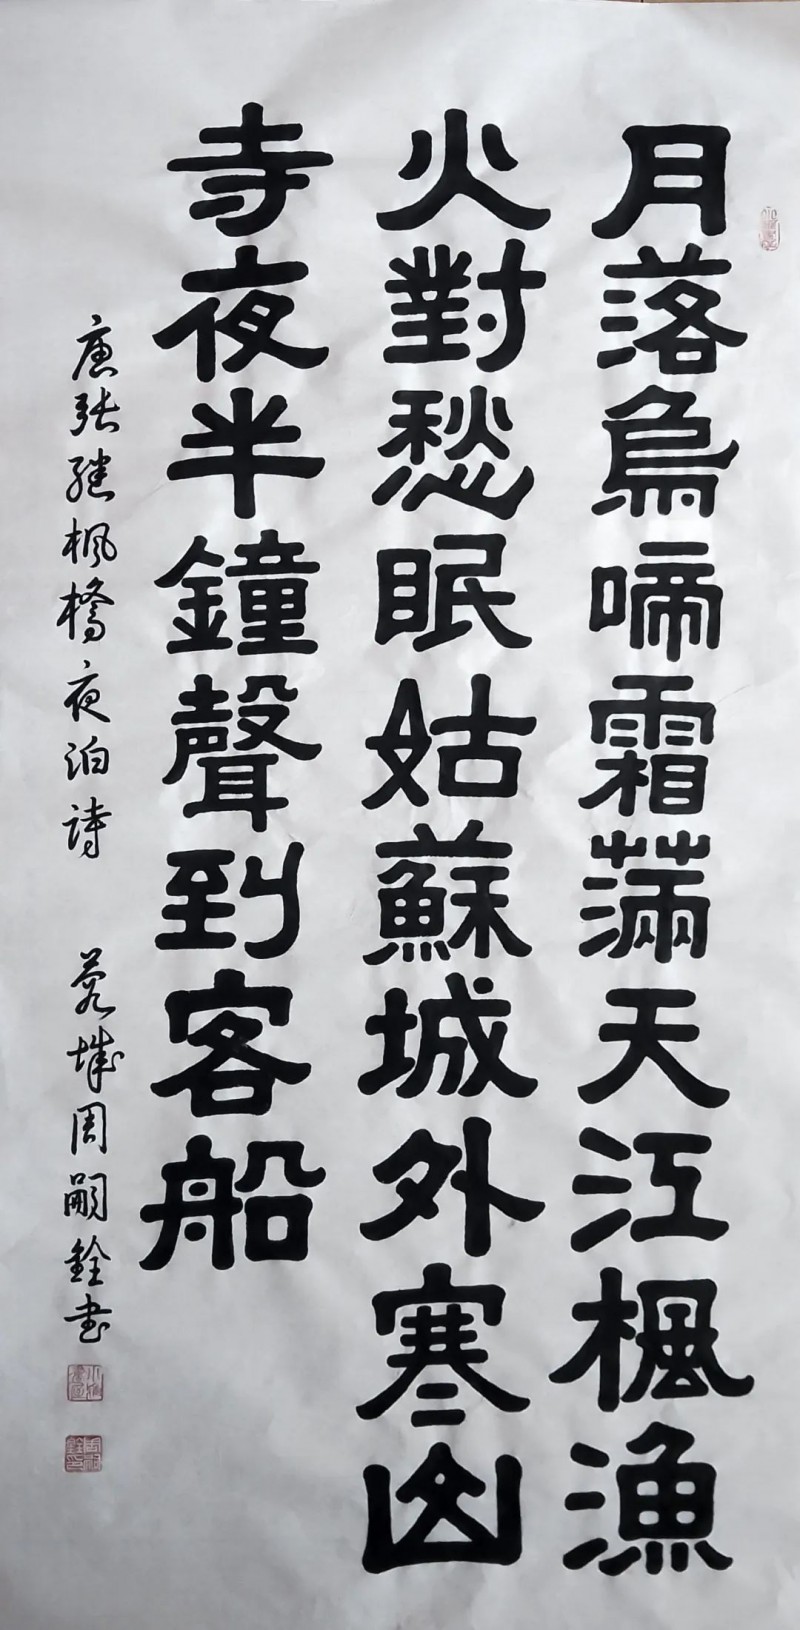 月落烏啼霜滿天江楓漁
火對愁眠姑蘇城外寒山
寺夜半鐘聲到客船
唐張継楓橋夜泊詩 蓉城周嗣銓书